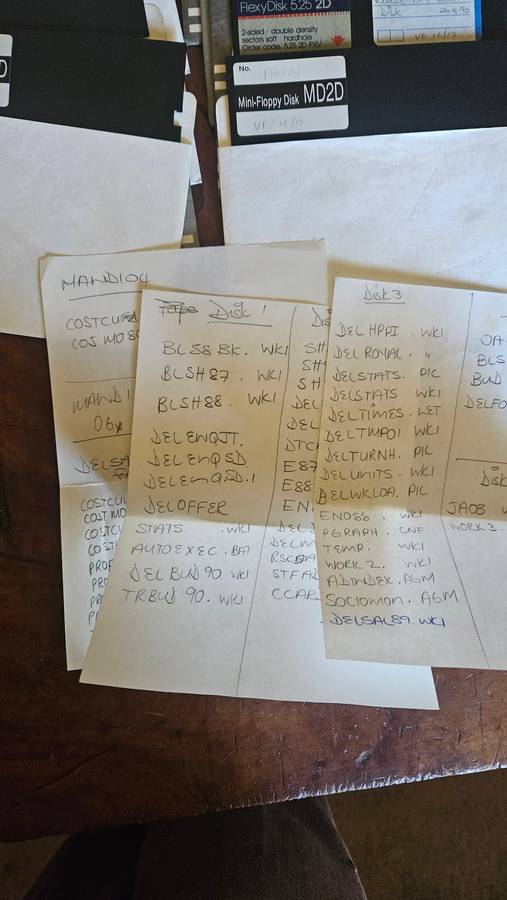 FlexyDisk 5.25 2D
2-sided · double density
sectors soft · hardhole
Order code: 5.25 2D PXV
Disk
VF 12/17
No. ANN
Mini-Floppy Disk MD2D
VF 12/17
D
MAND104
COSTCU
COSMO88
MAND1
DELSA
COSTCU
COSTMO
COSTCU
COSTI
PROF
PRO
PR
P
Disk 1
BLSSBK. WK1
BLSH87 . WK1
BLSH88 . WK1
DELENQJT.
DELENQSD
DELENQSD.1
DELOFFER
STATS .WK1
AUTOEXEC . BAT
DELBUD90 WK1
TRBUD90. WK1
Dis
SH
SH
SH
DEL
DEL
DTC
E87
E88
EN
DEL
DELM
STFAD
CCAR
Disk 3
DELHPPI . WK1
DELROYAL . "
DELSTATS. PIC
DELSTATS WK1
DELTIMES. LET
DELTMPO1 WK1
DELTURNH. PIC
DELUNITS. WK1
DELWKLOA. PIC
ENO88 . WK1
PGRAPH . CNF
TEMP. WK1
WORK2. WK1
ADINDEX. AGM
SOCIOMON. AGM
DELSAL89. WK1
OA
BLS
BUD
DELFO
Disk
JAO8 W
WORK3.